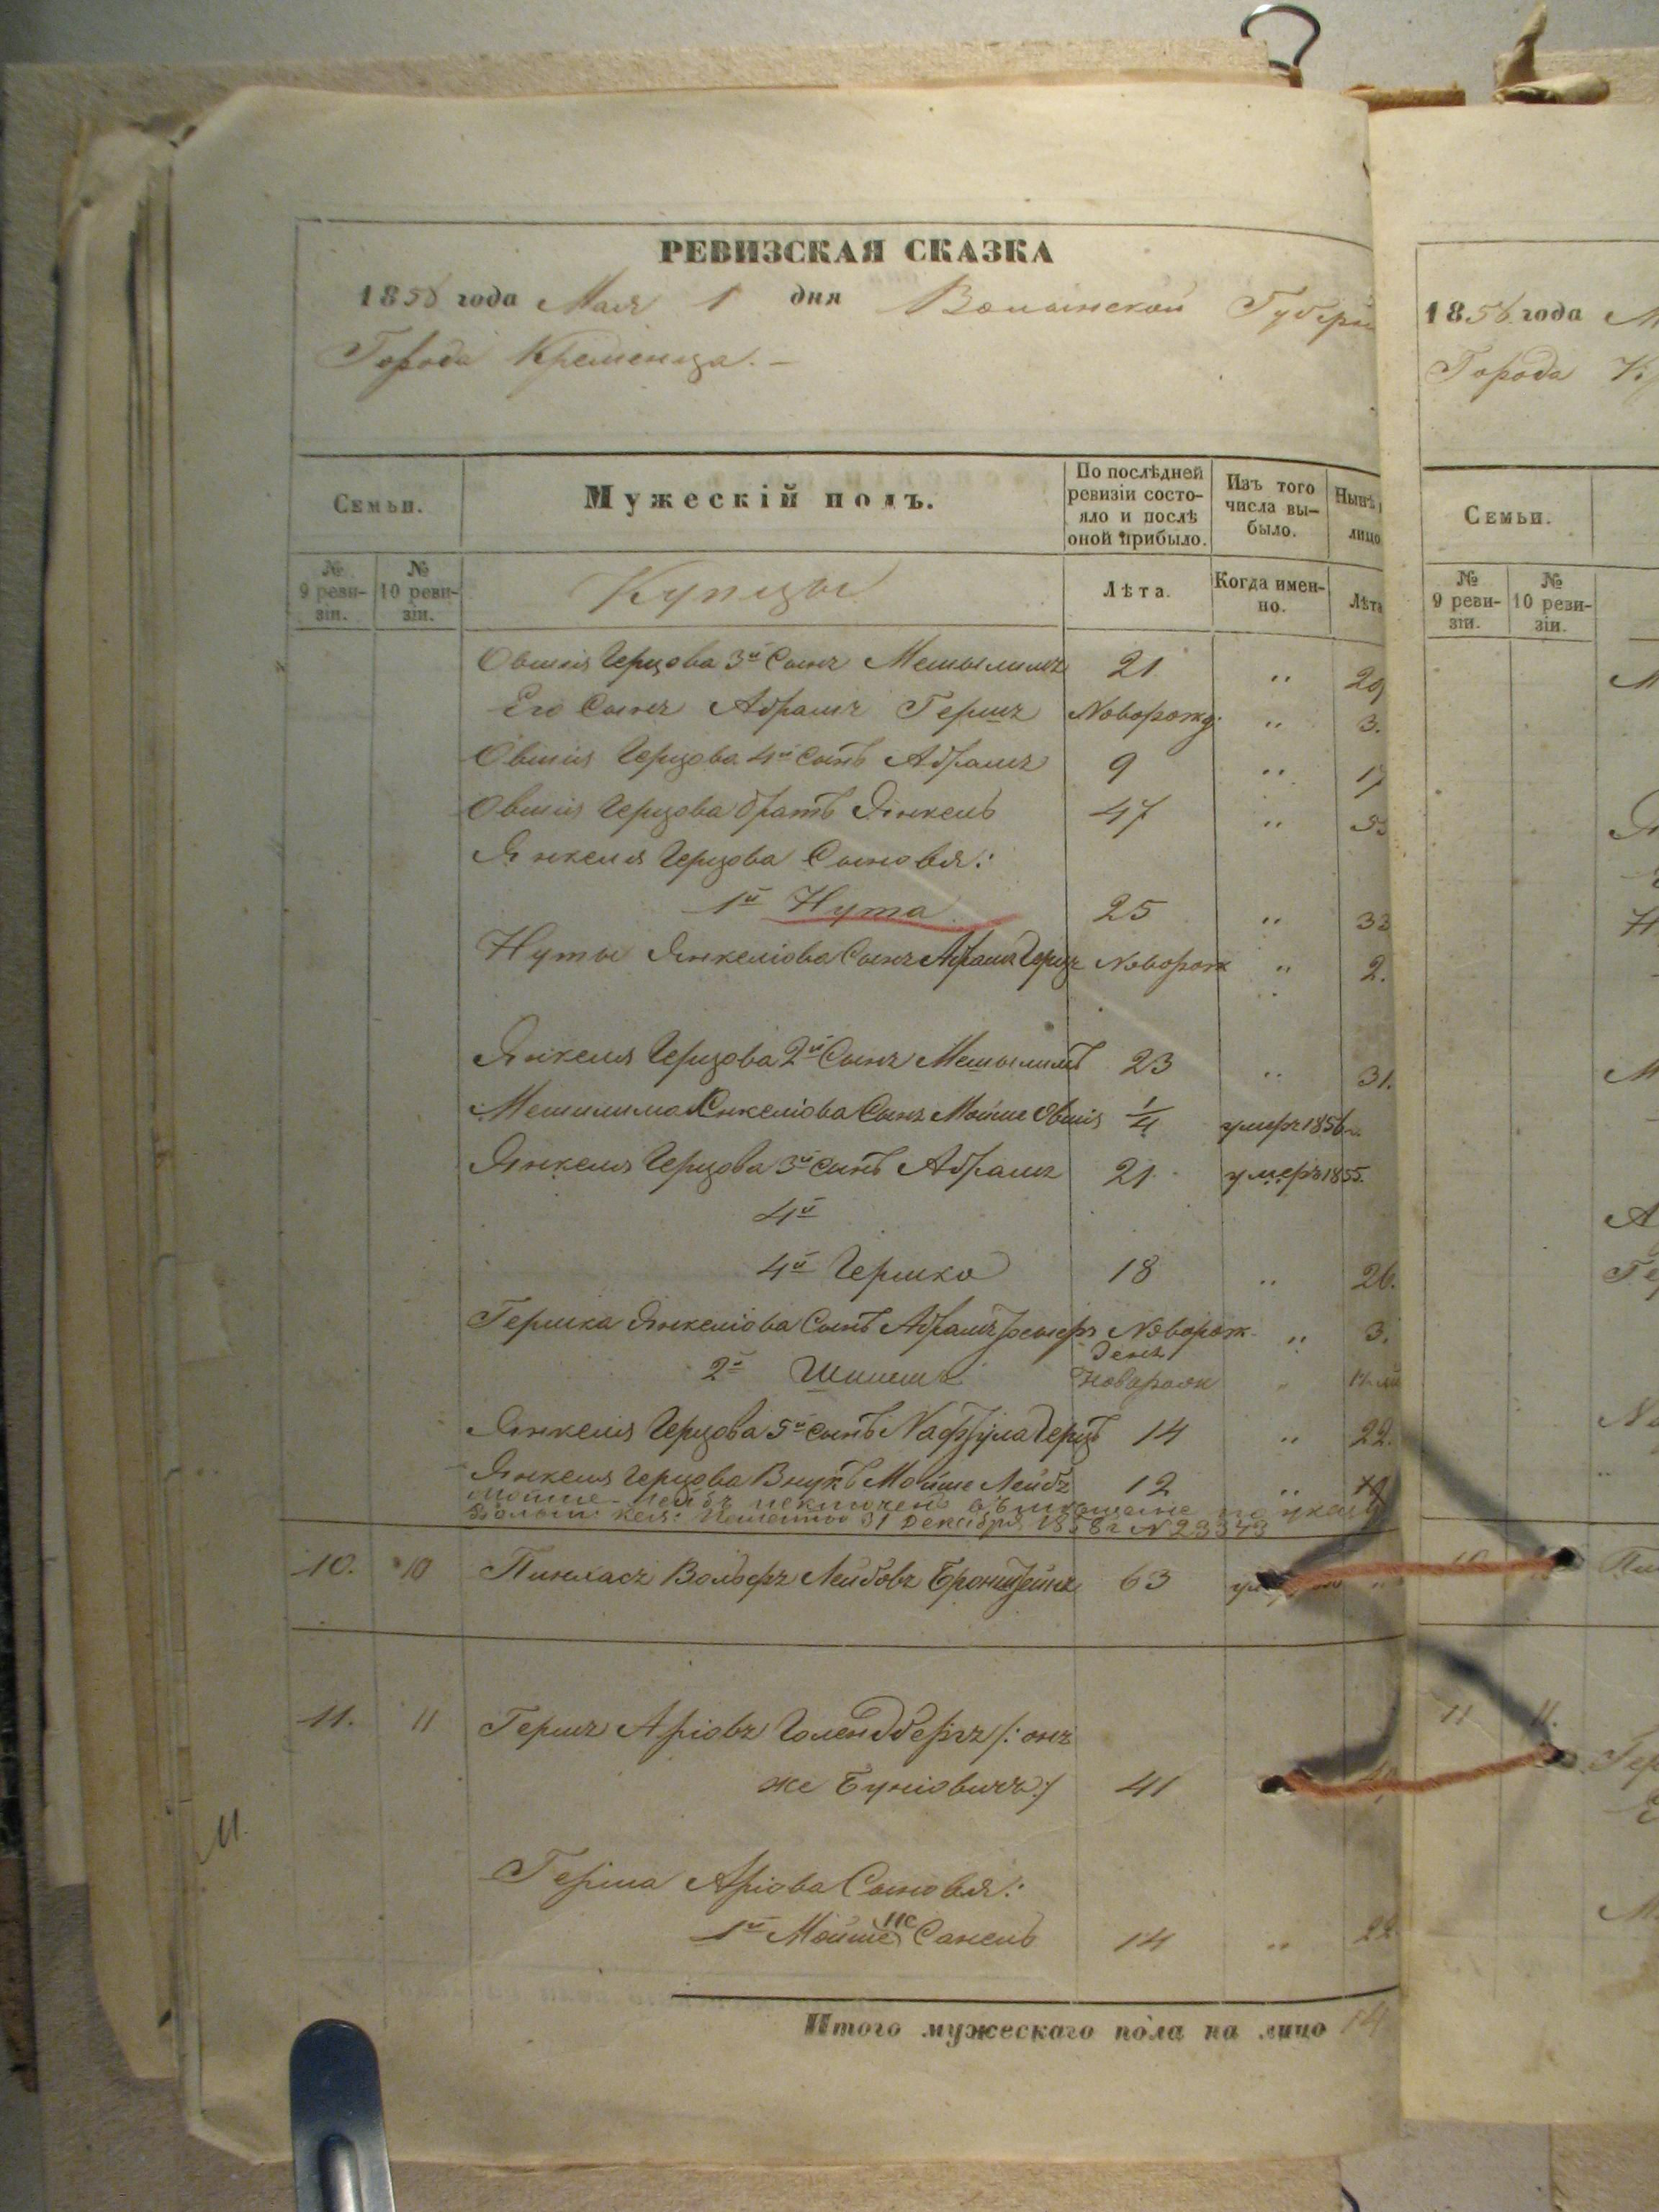 РЕВИЗСКАЯ СКАЗКА
1858 года Мая 1 дня Волынской Губерн
Города Кременца. –
Семьи.
Мужескій полъ.
По послѣдней ревизіи состо-
яло и послѣ
оной прибыло.
Изъ того
числа вы-
было.
Нынѣ
лицо
№ 9 реви-
зіи.
№ 10 реви-
зіи.
Купцы
Лѣта.
Когда имен-
но.
Лѣта
Овшія Герцова 3й Сынъ Мешылимъ 21 " 29
Его Сынъ Абрамъ Гершъ Новорожд: " 3.
Овшія Герцова 4й Сынъ Абрамъ 9 " 17
Овшія Герцова братъ Янкель 47 " 55
Янкеля Герцова Сыновья:
1й Нута 25 " 33
Нуты Янкеліова Сынъ Абрамъ Герцъ Новорож " 2.
Янкеля Герцова 2й Сынъ Мешылимъ 23 " 31.
Мешилима Янкеліова Сынъ Мойше Овшія 1/4 умеръ 1856 г.
Янкеля Герцова 3й Сынъ Абрамъ 21 умеръ 1855.
4й
4й Гершко 18 " 26.
Гершка Янкеліова Сынъ Абрамъ Новорож- " 3.
денъ
2й Новорож "
Янкеля Герцова 5й Сынъ Герцъ 14 " 22.
Янкеля Герцова Внукъ Мойше Лейбъ 12 "
Мойше-Лейбъ исключенъ
31 Декабря 1858 г N 23343
10. 10 Пинхасъ Вольфъ Лейбовъ Бронштейнъ 63
11. 11 Гершъ Аріовъ Голендбергъ /: онъ
же Буніовичъ :/ 41
Герша Аріова Сыновья:
1й Мойше Санель 14 " 22
Итого мужескаго пола на лицо 14
11.
1858 года М
Города К
Семьи.
№ 9 реви-
зіи.
№ 10 реви-
зіи.
10
11 11.